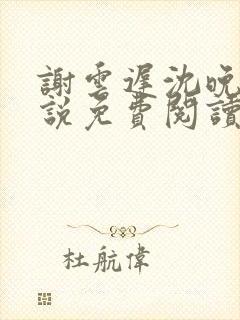 謝雲遲沈晚
說免費閱讀
杜航偉